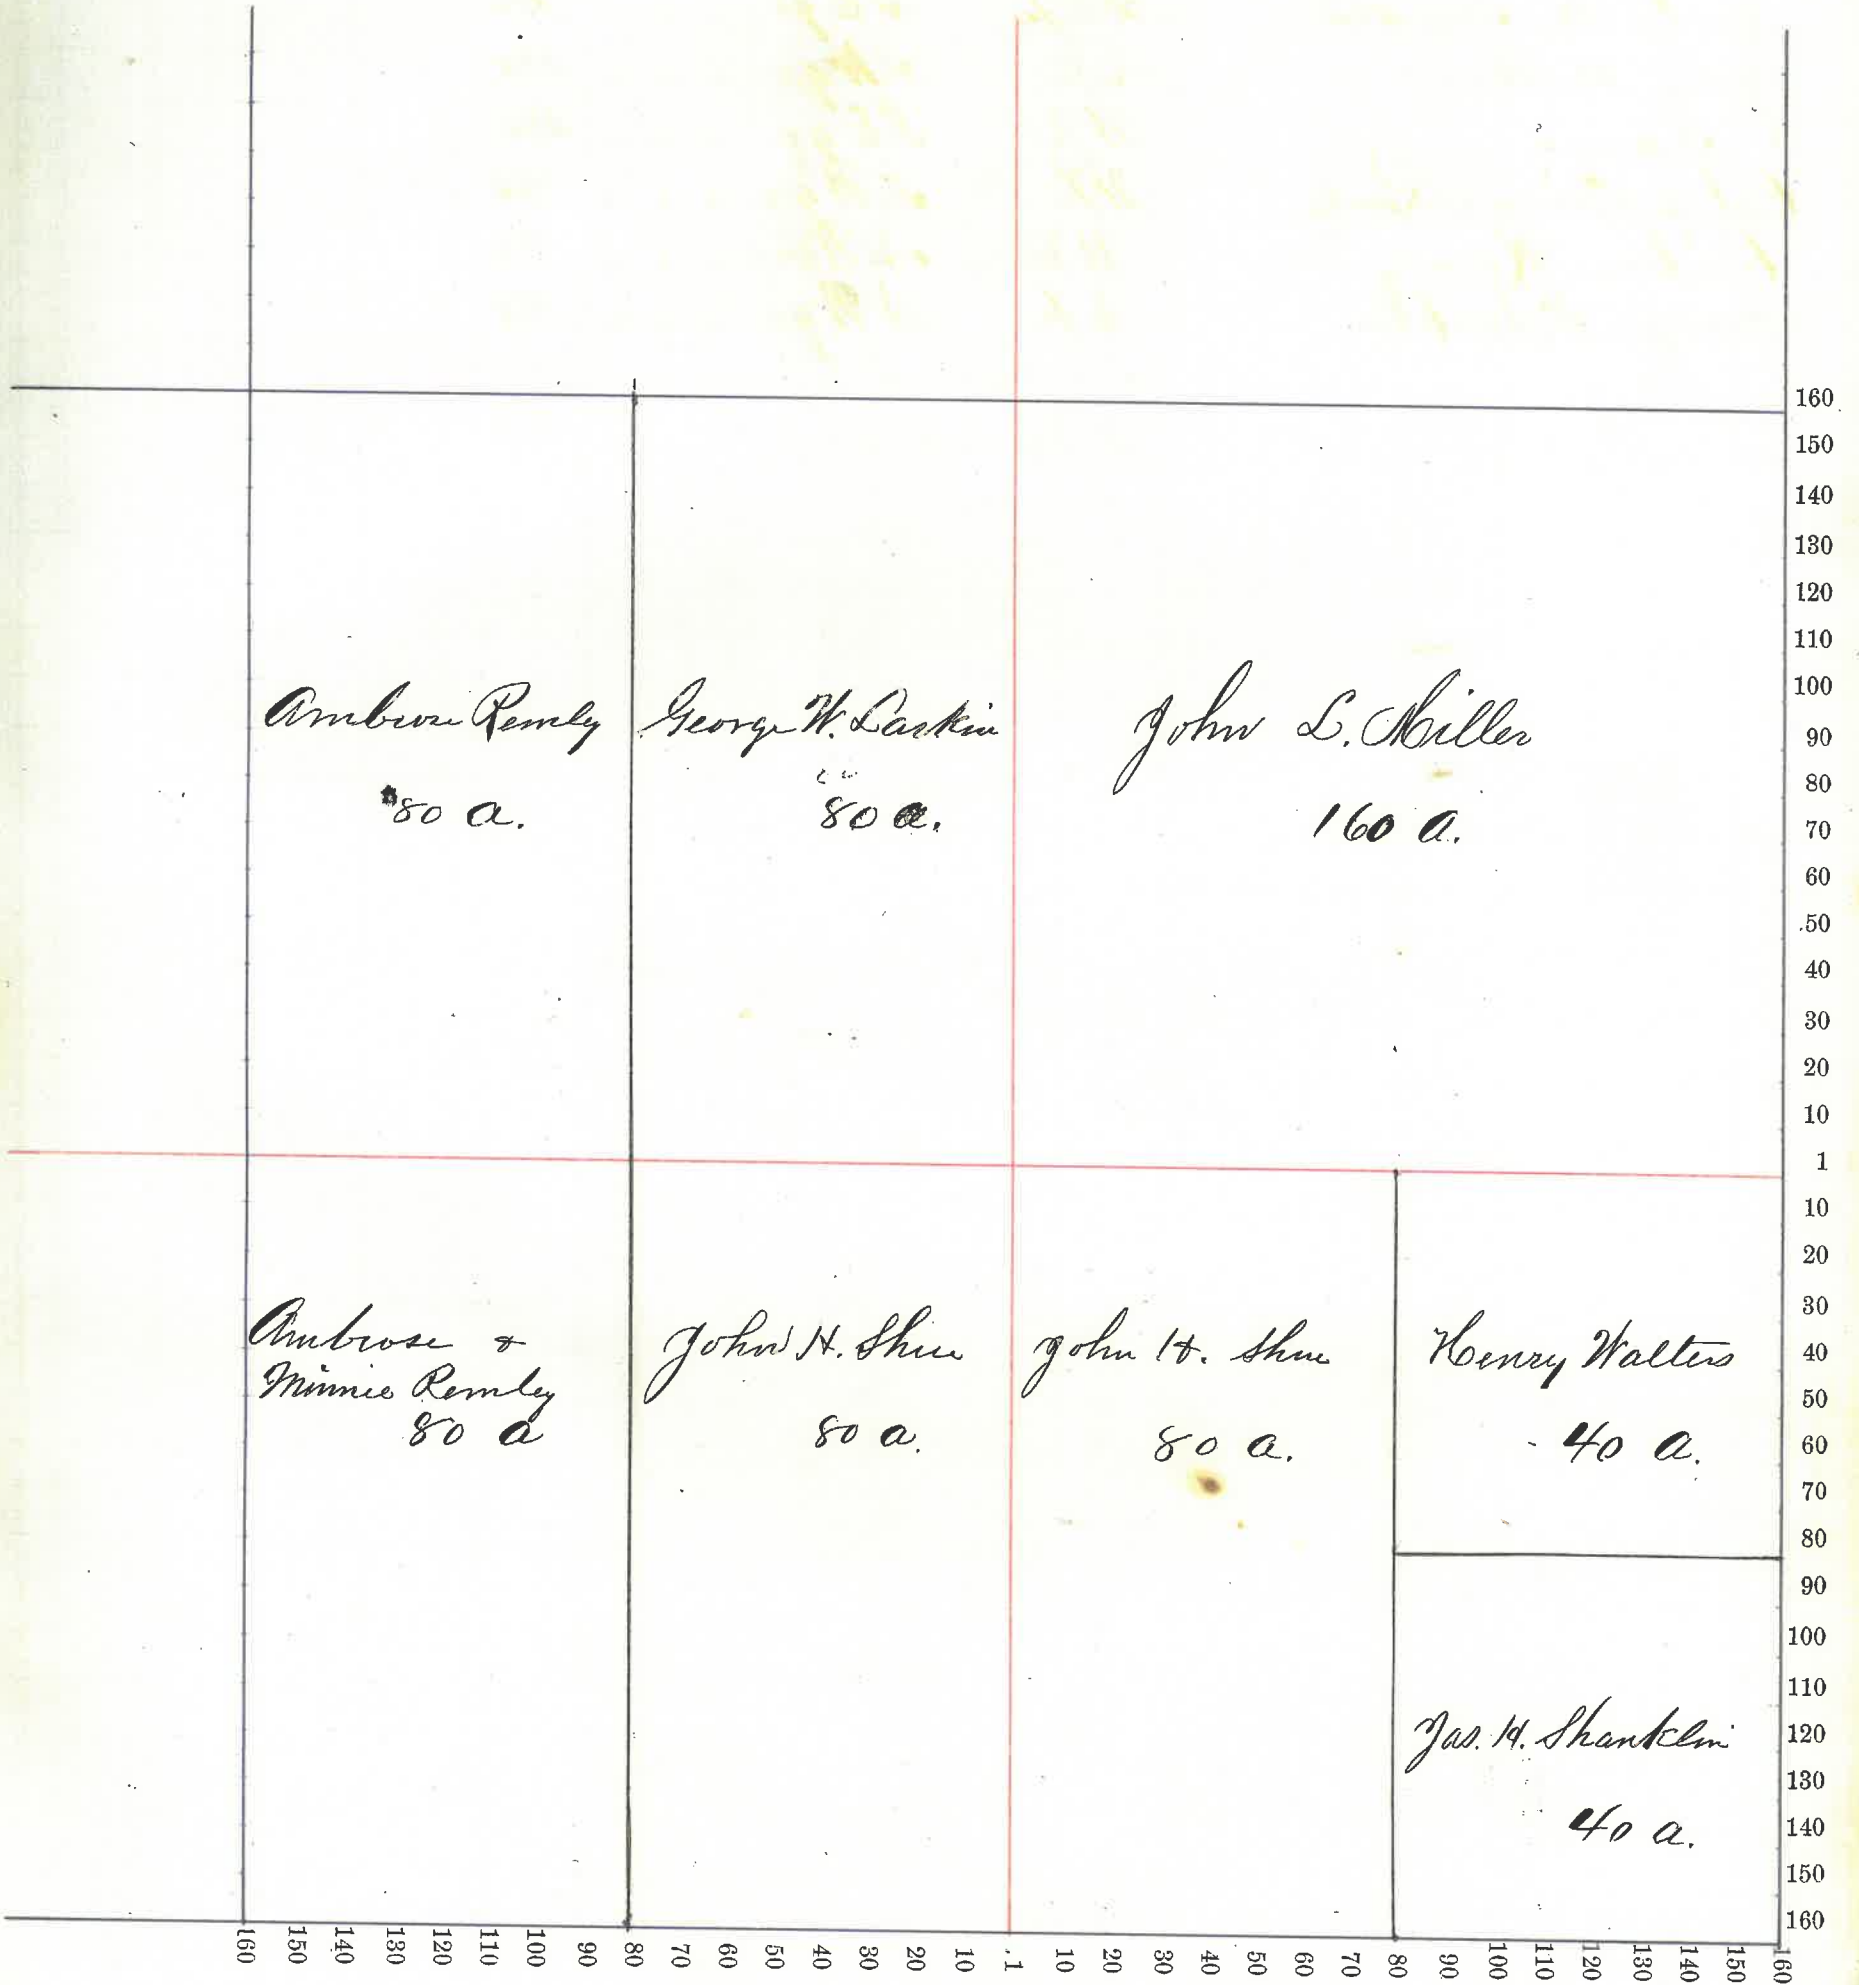 Ambrose Remley
80 a.
George W. Larkin
80 a.
John L. Miller
160 a.
Ambrose &
Minnie Remley
80 a
John H. Shue
80 a.
John H. Shue
80 a.
Henry Walters
40 a.
Jas. H. Shanklin
40 a.
160
150
140
130
120
110
100
90
80
70
60
50
40
30
20
10
1
10
20
30
40
50
60
70
80
90
100
110
120
130
140
150
160
160 150 140 130 120 110 100 90 80 70 60 50 40 30 20 10 1 10 20 30 40 50 60 70 80 90 100 110 120 130 140 150 160